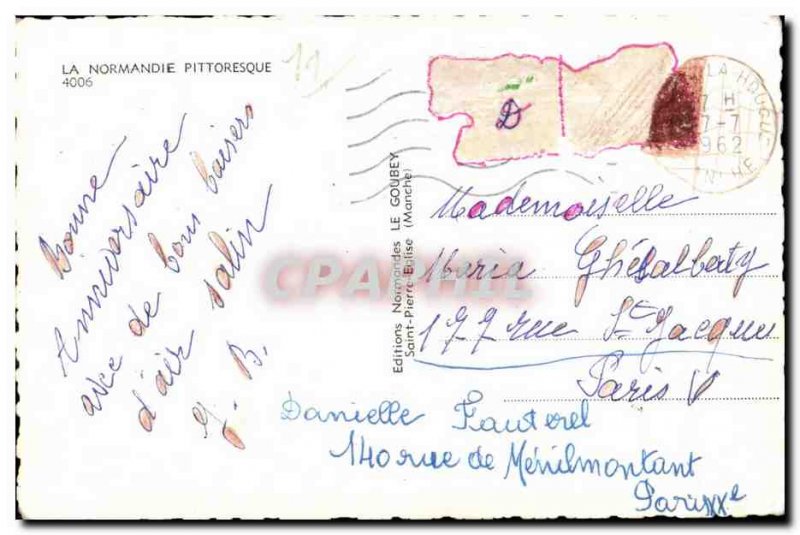 LA NORMANDIE PITTORESQUE
4006
Bonne
Anniversaire
avec de bons baisers
d'air salin
B.
Editions Normandes LE GOUBEY
Saint-Pierre-Eglise (Manche)
D
LA HAGUE
7 H
7-7
1962
Mademoiselle
Maria Ghésalberty
177 rue St Jacques
Paris V
Danielle Fauterel
140 rue de Ménilmontant
Paris XXe
CPARAMA